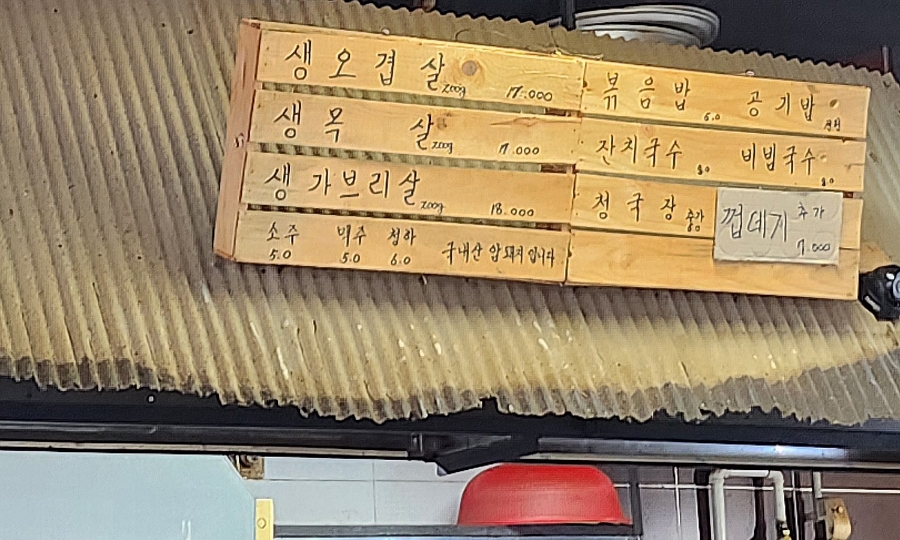 생 오 겹 살 200g 17.000
생 목 살 200g 17.000
생 가브리살 200g 18.000
소주 맥주 청하
5.0 5.0 6.0
국내산 암돼지입니다
볶음밥 공기밥
잔치국수 비빔국수
청국장
껍데기 추가
7.000